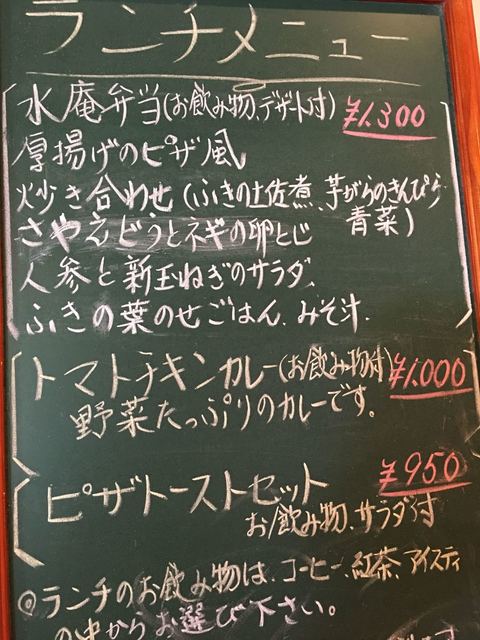 ランチメニュー
水庵弁当(お飲み物、デザート付) ¥1,300
厚揚げのピザ風
炊き合わせ(ふきの土佐煮、芋がらのきんぴら
青菜)
さやえんどうとネギの卵とじ
人参と新玉ねぎのサラダ、
ふきの葉のせごはん、みそ汁、
トマトチキンカレー(お飲み物付) ¥1,000
野菜たっぷりのカレーです。
ピザトーストセット ¥950
お飲み物、サラダ付
◎ランチのお飲み物は、コーヒー、紅茶、アイスティ
の中からお選び下さい。